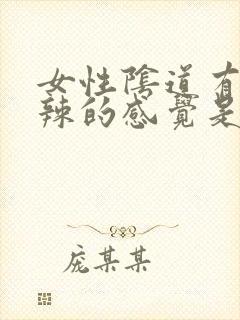 女性陰道有
辣的感覺是
庞某某